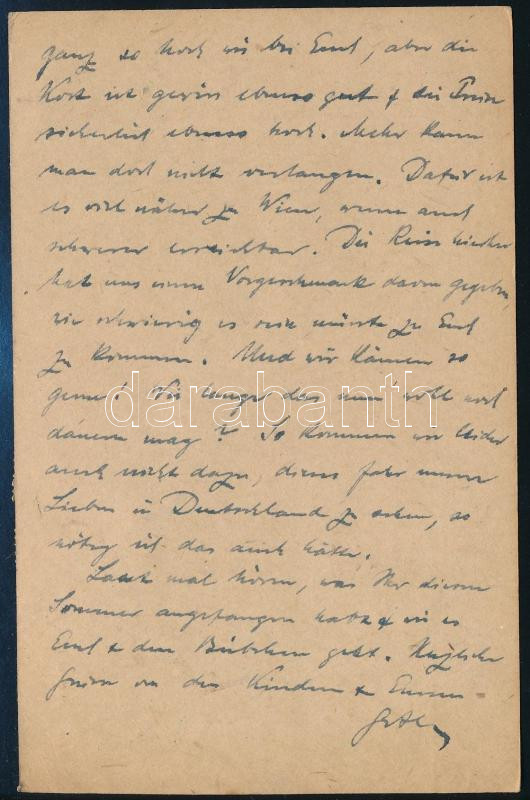 ganz so hoch wie bei Euch, aber die
Kost ist gewiss ebenso gut & die Preise
sicherlich ebenso hoch. Mehr kann
man doch nicht verlangen. Dafür ist
es viel näher zu Wien, wenn auch
schwerer erreichbar. Die Reise hierher
hat uns einen Vorgeschmack davon gegeben,
wie schwierig es sein müsste zu Euch
zu kommen. Und wir kämen so
gerne! Wie lange das nun wohl noch
dauern mag? So kommen wir leider
auch nicht dazu, dieses Jahr unsere
Lieben in Deutschland zu sehen, so
nötig ich das auch hätte.
Lasst mal hören, was Ihr diesen
Sommer angefangen habt & wie es
Euch & dem Bübchen geht. Herzliche
Grüsse von den Kindern &
darabanth